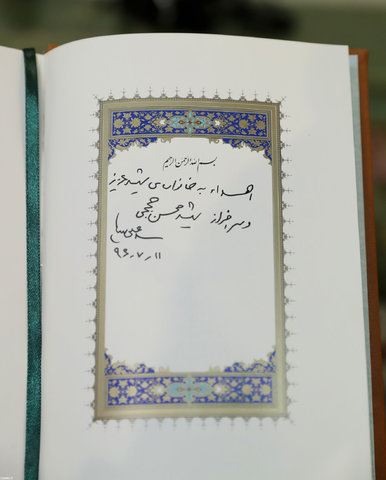 بسم الله الرحمن الرحیم
اهداء به خانواده‌ی شهید عزیز
و سرافراز شهید محسن حججی
سیدعلی خامنه‌ای
۹۶٫۷٫۱۱